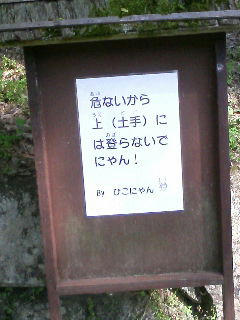 危ないから
上（土手）に
は登らないで
にゃん！
BY ひこにゃん